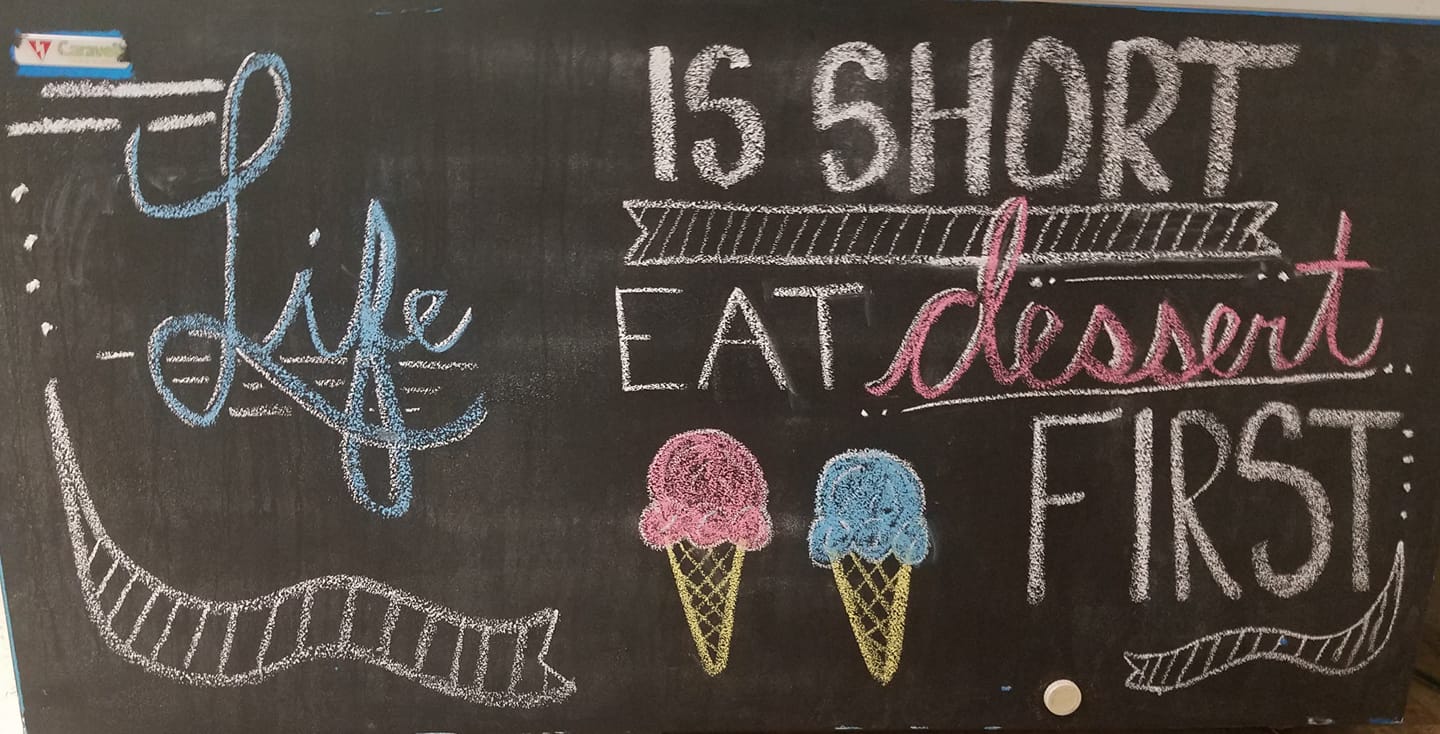 Caravell
Life
IS SHORT
EAT dessert
FIRST